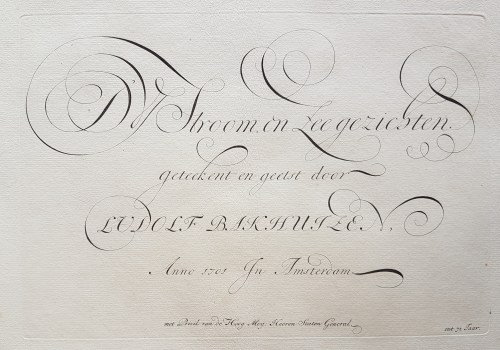 D'Y Stroom, en Zee gezichten.
Geteekent en geetst door
LUDOLF BAKHUIZEN.
Anno 1701 In Amsterdam
met Privil. van de Hoog Mog: Heeren Staten Generael
aet 71 Jaar.